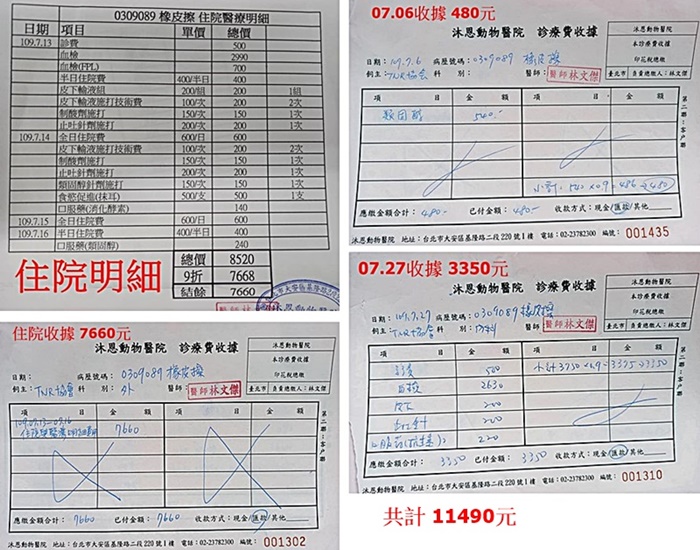 0309089 橡皮擦 住院醫療明細
日期 項目 單價 價格
109.7.13 診費 500
血檢 2990
血檢(FPL) 700
半日住院費 400/半日 400
皮下輸液組 200/組 200 1組
皮下輸液施打技術費 100/次 200 2次
制酸劑施打 150/次 150 1次
止吐針劑施打 200/次 200 1次
109.7.14 全日住院費 600/日 600
皮下輸液施打技術費 100/次 200 2次
制酸劑施打 150/次 150 1次
止吐針劑施打 200/次 200 1次
類固醇針劑施打 150/次 150 1次
食慾促進(抹耳) 500/支 500 1支
口服藥(消化酵素) 140
109.7.15 全日住院費 600/日 600
109.7.16 半日住院費 400/半日 400
口服藥(類固醇) 240
總價 8520
9折 7668
結餘 7660
住院明細
07.06收據 480元
沐恩動物醫院 診療費收據
沐恩動物醫院
本診療費收據
印花稅總繳
臺北市 負責總繳人:林文傑
日期: 109.7.6 病歷號碼: 0309089 橡皮擦
飼主: TNR協會 科 別: 醫師: 醫師林文傑
項 目 金 額 項 目 金 額
類固醇 540.-
小計: 540×0.9=486→480
第二聯:客戶聯
應繳金額合計: 480.- 已付金額: 480.- 收款方式:現金/匯款/其他
沐恩動物醫院 地址:台北市大安區基隆路二段220號1樓 電話:02-23782300 編號: 001435
住院收據 7660元
沐恩動物醫院 診療費收據
沐恩動物醫院
本診療費收據
印花稅總繳
臺北市 負責總繳人:林文傑
日期: 病歷號碼: 0309089 橡皮擦
飼主: TNR協會 科 別: 外 醫師: 醫師林文傑
項 目 金 額 項 目 金 額
109.07.13~07.16
住院 7660
第二聯:客戶聯
應繳金額合計: 7660 已付金額: 7660 收款方式:現金/匯款/其他
沐恩動物醫院 地址:台北市大安區基隆路二段220號1樓 電話:02-23782300 編號: 001302
07.27收據 3350元
沐恩動物醫院 診療費收據
沐恩動物醫院
本診療費收據
印花稅總繳
臺北市 負責總繳人:林文傑
日期: 109.7.27 病歷號碼: 0309089 橡皮擦
飼主: TNR協會 科 別: 醫師: 醫師林文傑
項 目 金 額 項 目 金 額
診費 500 小計3750×0.9=3375→3350
血檢 2630
皮下 200
200
220
第二聯:客戶聯
應繳金額合計: 3350 已付金額: 3350 收款方式:現金/匯款/其他
沐恩動物醫院 地址:台北市大安區基隆路二段220號1樓 電話:02-23782300 編號: 001310
共計 11490元